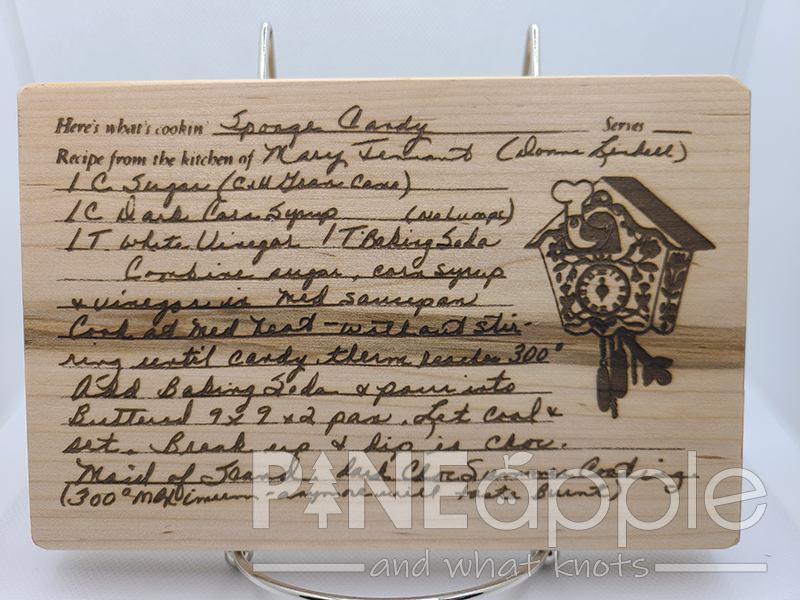 Here's what's cookin' Sponge Candy Serves
Recipe from the kitchen of Mary Tennant (Donna Lindell)
1 C. Sugar (C&H Gran Cane)
1 C Dark Corn Syrup (No Lumps)
1 T White Vinegar 1 T Baking Soda
Combine sugar, corn syrup
& vinegar in Med saucepan
Cook at Med heat - without stir-
ring until candy therm reaches 300°
Add Baking Soda & pour into
Buttered 9 x 9 x 2 pan. Let cool &
set. Break up & dip in choc.
Maid of Scand. dark Choc Summer Coating
(300° maximum - anymore will taste burnt)
PINEapple
and what knots